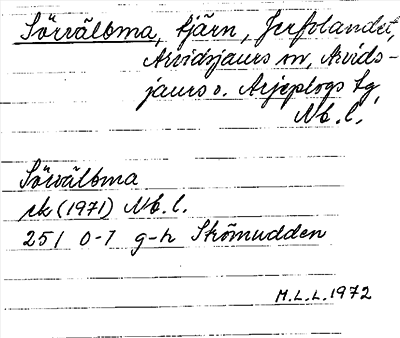 Sörvälbma, tjärn, Jerfolandet,
Arvidsjaurs sn, Arvids-
jaurs o. Arjeplogs tg,
Nb.l.
Sörvälbma
rk (1971) Nb.l.
25I 0-1 g-h Strömudden
M.L.L. 1972